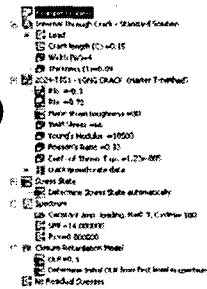 Internal Through Crack - Standard Solution
Load
Crack length (C) =0.15
Width (W)=4
Thickness (T)=0.09
2024-T351 - LONG CRACK (Harter T-Method)
=0.3
Plane strain toughness =30
Yield Stress =
Young's Modulus =10500
Poisson's Ratio =0.33
Coeff. of therm. Exp. =1.23e-005
Crack growth rate data
Stress State
Determine Stress State automatically
Spectrum
Constant amp. loading,
SMF =14.000000
Closure Retardation Model
OLR =0.3
Determine Initial OLR from first level in spectrum
No Residual Stresses